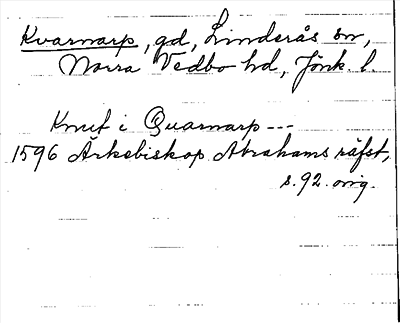 Kvarnarp, gd, Linderås sn,
Norra Vedbo hd, Jönk. l.
Knut i Quarnarp ---
1596 Ärkebiskop Abrahams räfst,
s. 92. orig.